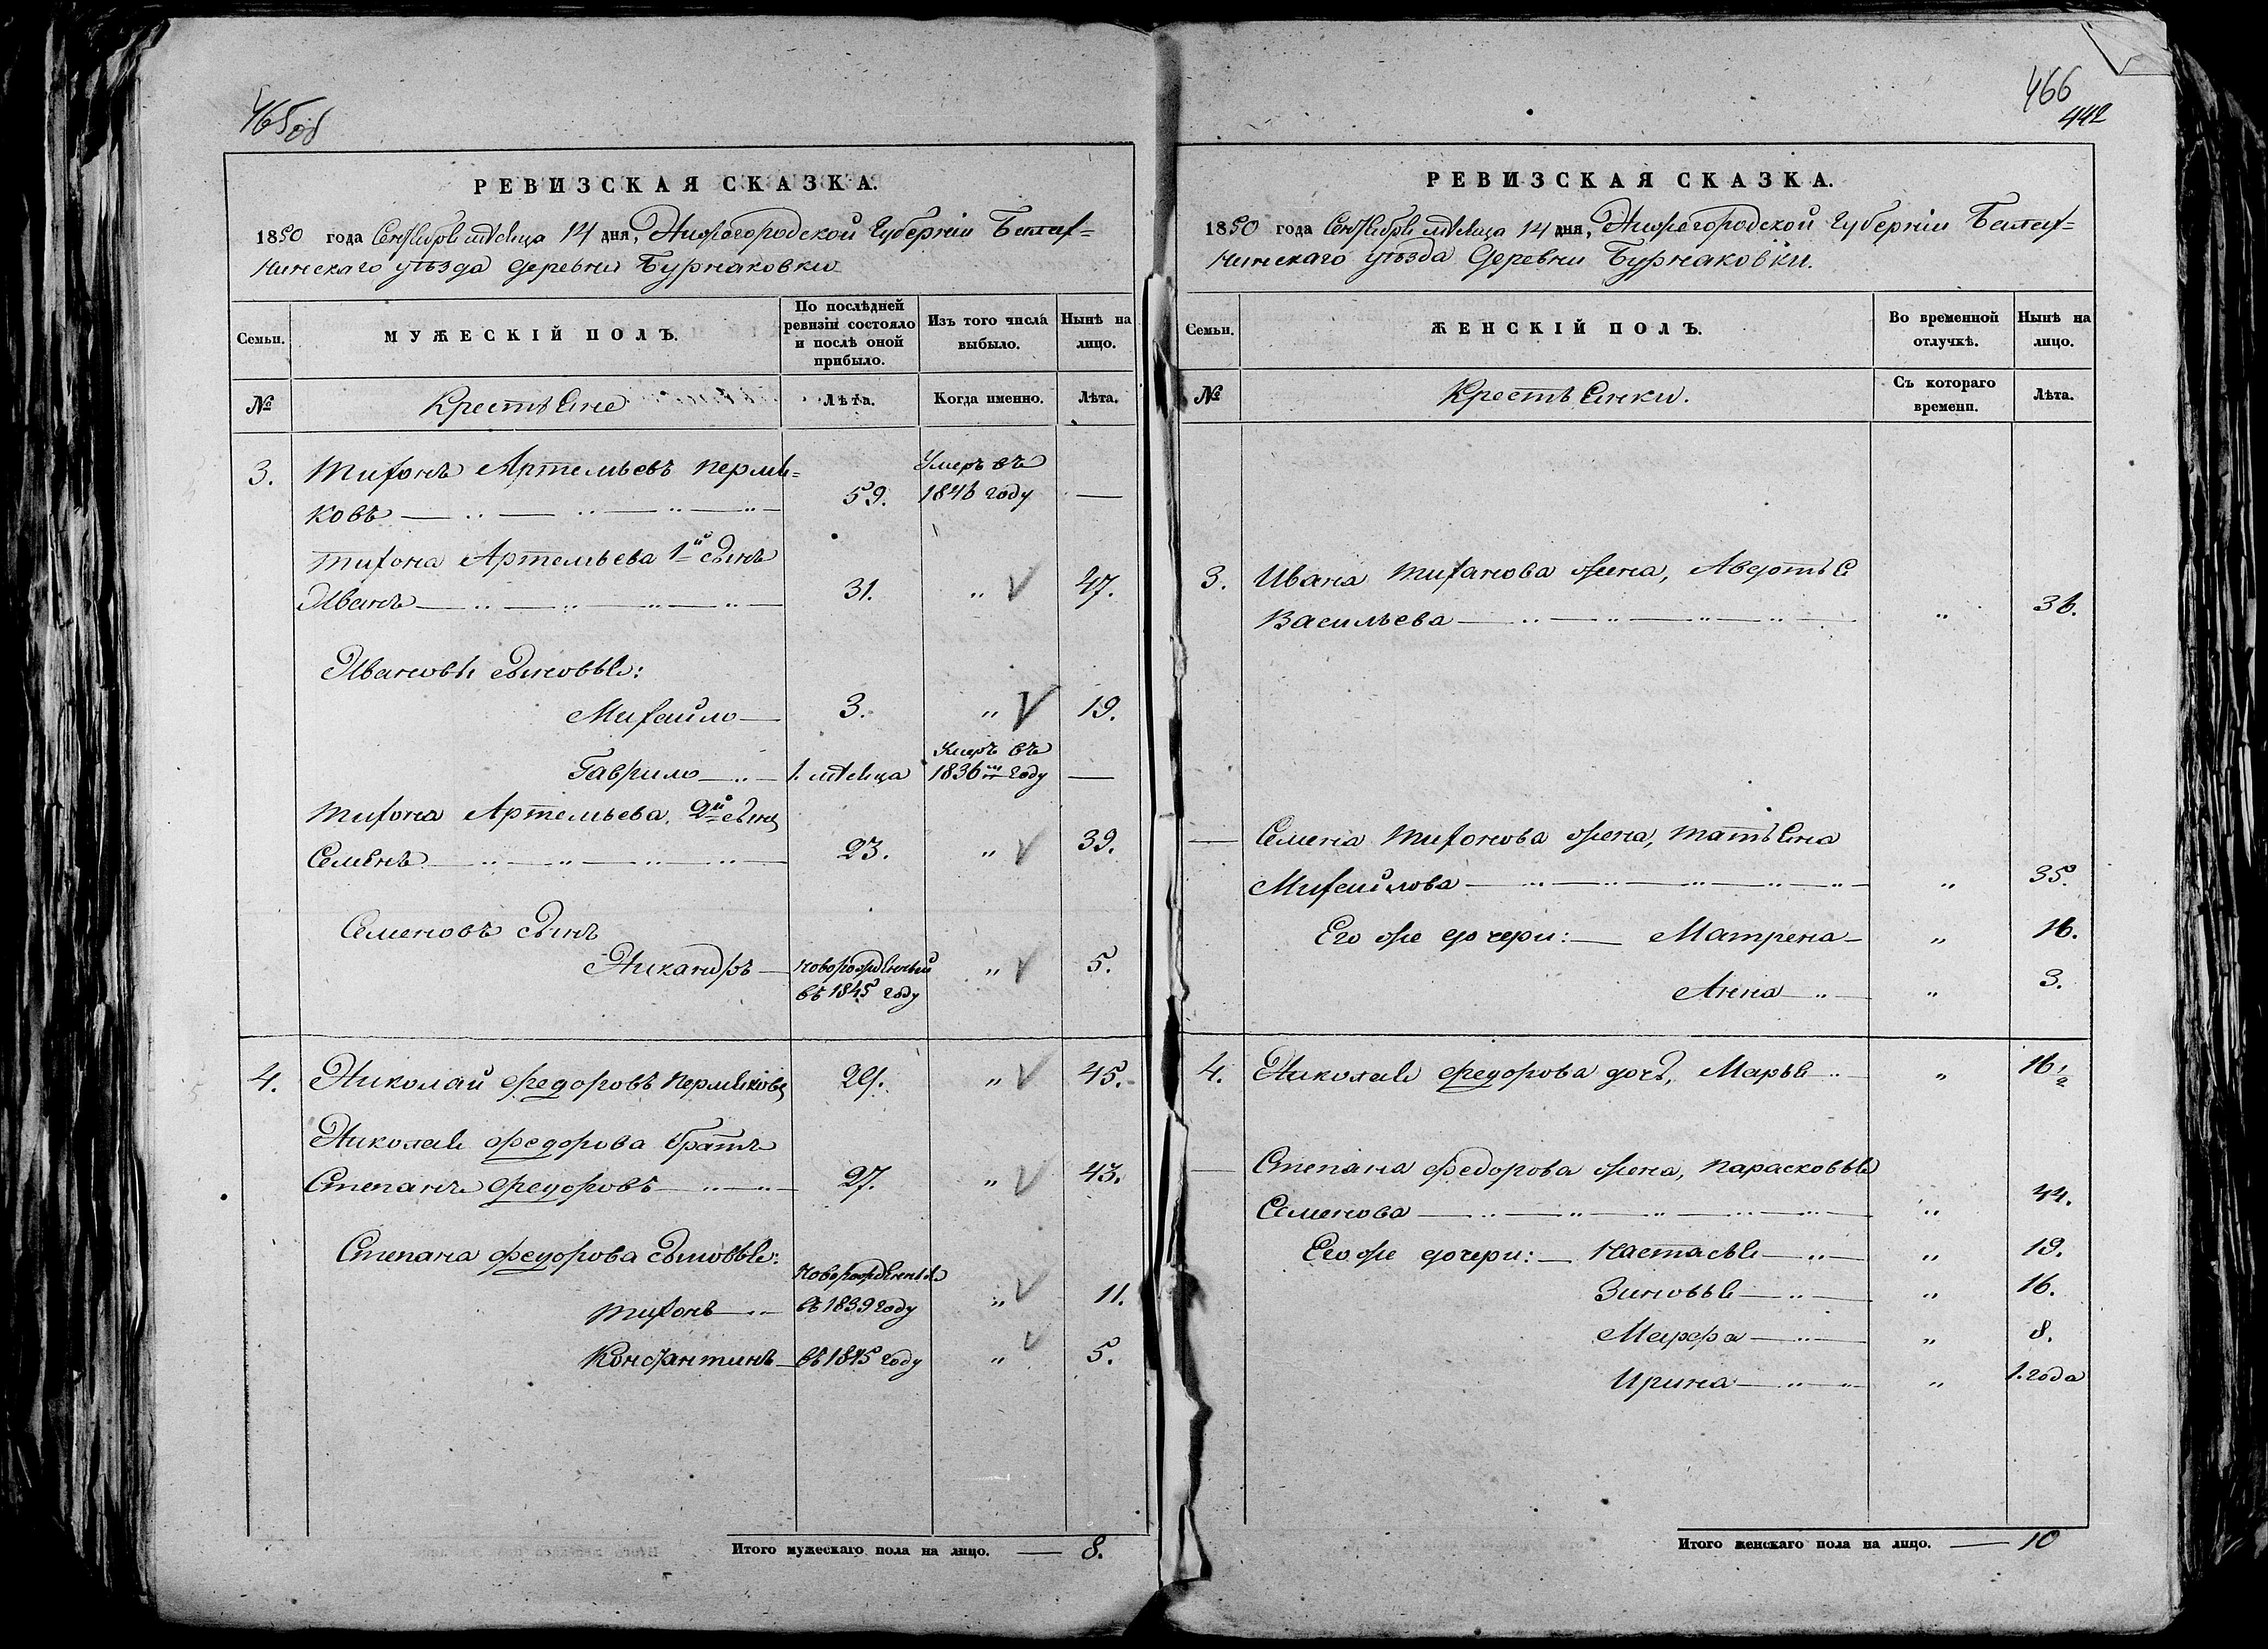 465 об
РЕВИЗСКАЯ СКАЗКА.
1850 года Сентября мѣсяца 14 дня, Нижегородской Губерніи Балах-
нинскаго уѣзда деревни Бурнаковки
Семьи.
МУЖЕСКІЙ ПОЛЪ.
По послѣдней ревизіи состояло и послѣ оной прибыло.
Изъ того числа выбыло.
Нынѣ на лицо.
№
Крестьяне
Лѣта.
Когда именно.
Лѣта.
3. Тихонъ Артемьевъ Пермя-
ковъ 59. Умеръ въ 1846 году —
Тихона Артемьева 1й сынъ
Иванъ 31. " 47.
Ивановы сыновья:
Михайло 3. " 19.
Гаврило 1. мѣсяца Умеръ въ 1836м году —
Тихона Артемьева 2й сынъ
Семенъ 23. " 39.
Семеновъ сынъ
Никандръ новорожденный въ 1845 году " 5.
4. Николай Федоровъ Пермяковъ 29. " 45.
Николая Федорова братъ
Степанъ Федоровъ 27. " 43.
Степана Федорова сыновья:
Тихонъ новорожденные въ 1839 году " 11.
Константинъ въ 1845 году " 5.
Итого мужескаго пола на лицо. — 8.
466
442
РЕВИЗСКАЯ СКАЗКА.
1850 года Сентября мѣсяца 14 дня, Нижегородской Губерніи Балах-
нинскаго уѣзда деревни Бурнаковки.
Семьи.
ЖЕНСКІЙ ПОЛЪ.
Во временной отлучкѣ.
Нынѣ на лицо.
№
Крестьянки.
Съ котораго времени.
Лѣта.
3. Ивана Тиханова жена, Авдотья
Васильева " 36.
— Семена Тихонова жена, Татьяна
Михайлова " 35.
Его же дочери: — Матрена " 16.
Анна " 3.
4. Николая Федорова дочь, Марья " 16 1/2
— Степана Федорова жена, Парасковья
Семенова " 44.
Его же дочери: — Настасья " 19.
Зиновья " 16.
Марфа " 8.
Ирина " 1. года
Итого женскаго пола на лицо. — 10